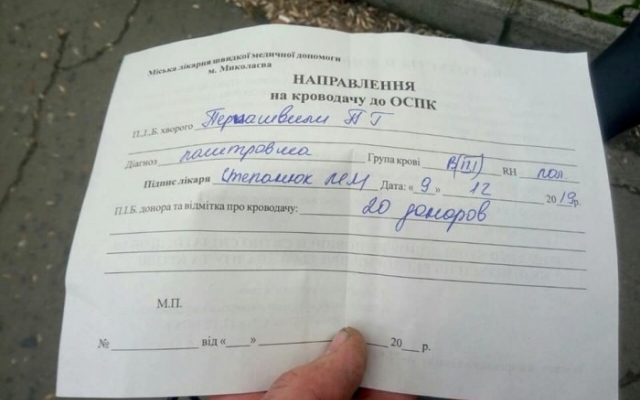 Міська лікарня швидкої медичної допомоги
м. Миколаєва
НАПРАВЛЕННЯ
на кроводачу до ОСПК
П.,І.,Б. хворого Пернашвили П Г
Діагноз политравма Група крові В(III) RH пол.
Підпис лікаря Степанюк Дата: «9» 12 2019р.
П.І.Б. донора та відмітка про кроводачу: 20 доноров
М.П.
№ ____________ від «___» ____________ 20___ р.